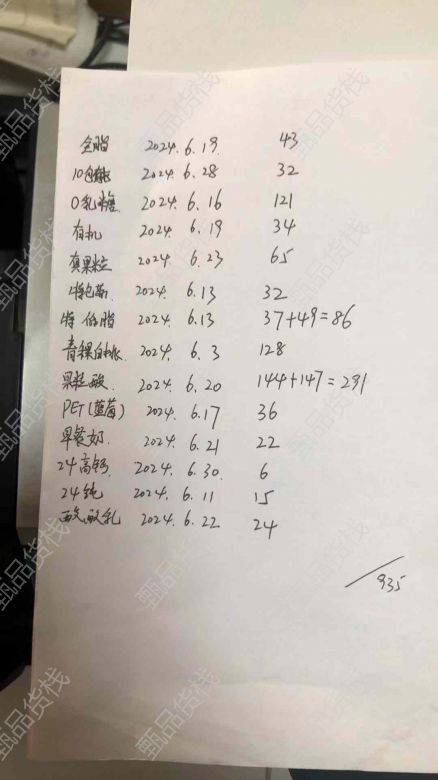 全脂 2024.6.19. 43
10包纯 2024.6.28 32
0乳糖. 2024.6.16 121
有机 2024.6.19 34
真果粒 2024.6.23 65
特仑苏. 2024.6.13 32
特低脂 2024.6.13 37+49=86
青稞白桃 2024.6.3 128
果粒酸 2024.6.20 144+147=291
PET(蓝莓) 2024.6.17 36
早餐奶. 2024.6.21 22
24高钙. 2024.6.30. 6
24纯 2024.6.11 15
酸乳 2024.6.22 24
935
甄品货栈